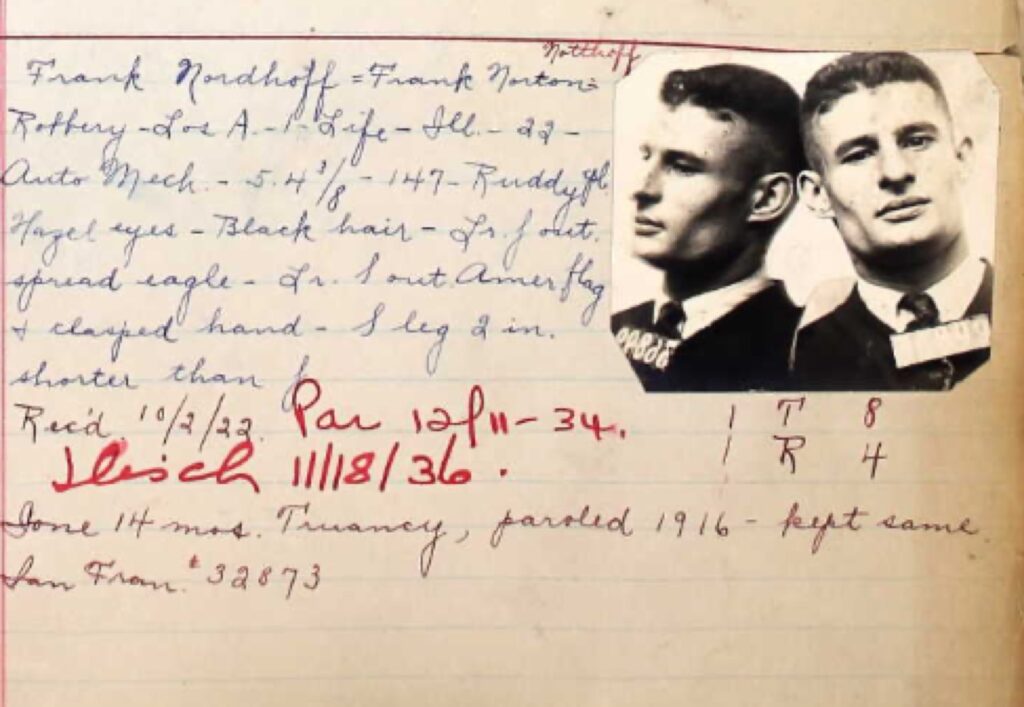 Notthoff
Frank Nordhoff = Frank Norton =
Robbery - Los A. - 1 - Life - Ill. - 22 -
Auto Mech. - 5.4 3/8 - 147 - Ruddy
Hazel eyes - Black hair - Fr. f out.
spread eagle - Fr. l out. Amer flag
& clasped hand - l leg 2 in.
shorter than
Rec'd. 10/2/22. Par 12/11-34. 1 T 8
Disch 11/18/36. 1 R 4
Ione 14 mos. Truancy, paroled 1916 - kept same.
San Fran. # 32873